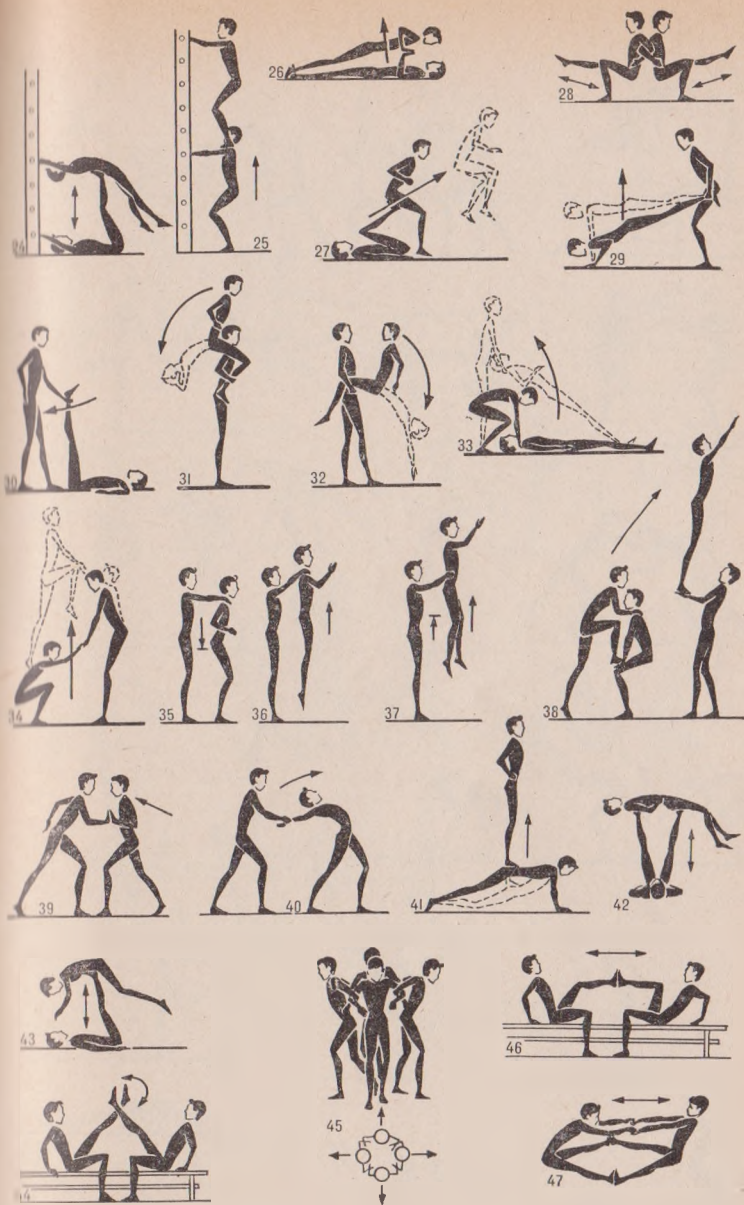 26
28
24
25
27
29
30
31
32
33
34
35
36
37
38
39
40
41
42
43
46
45
44
47